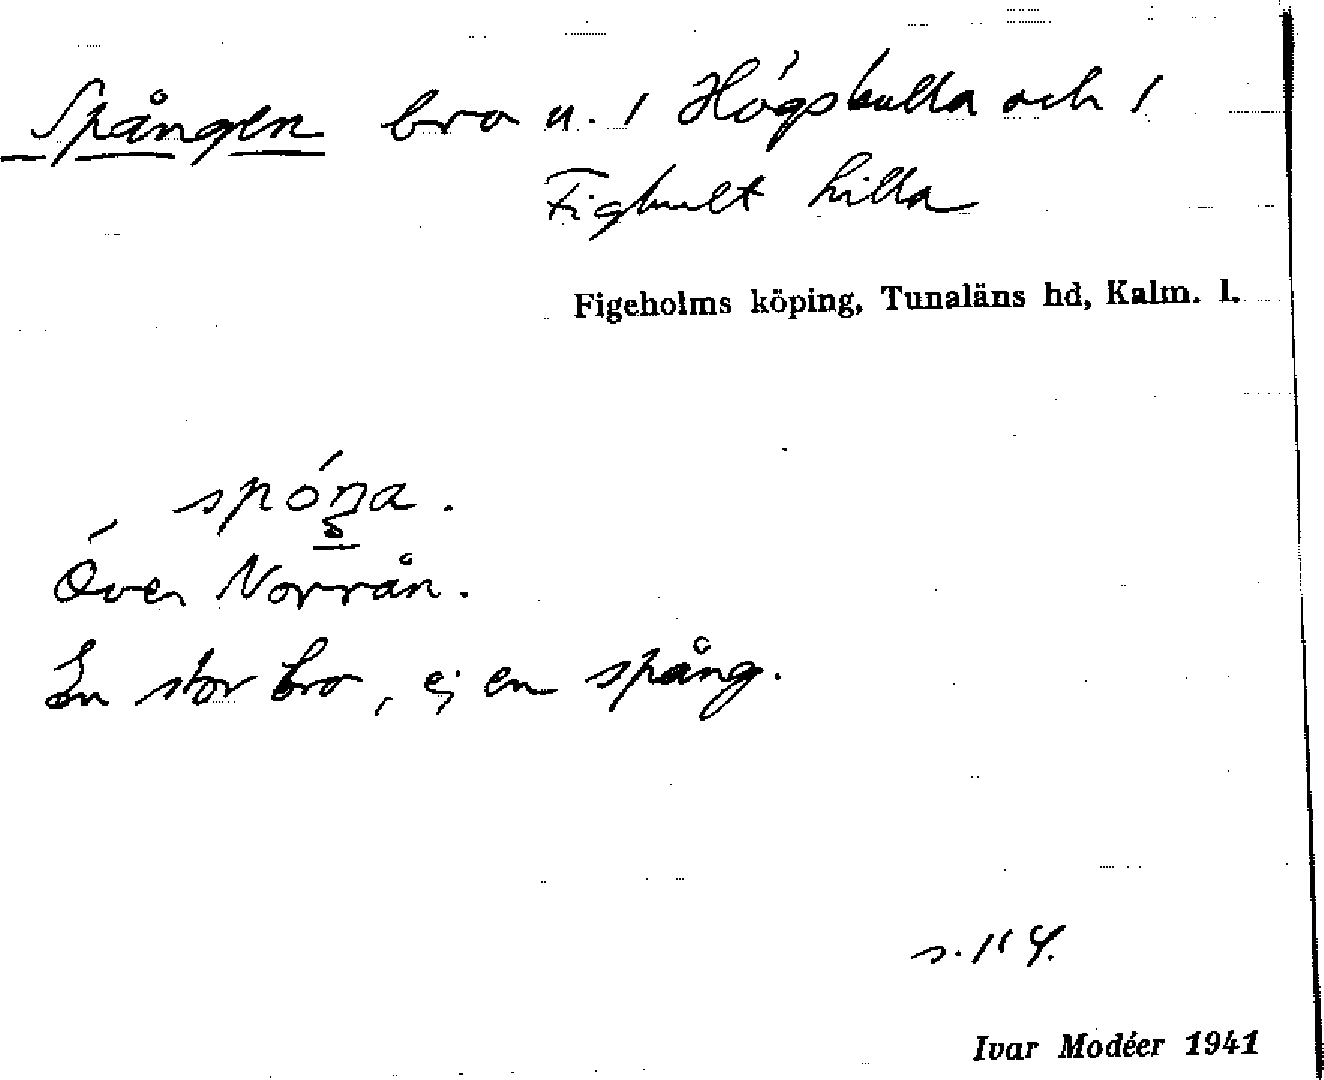 Spången bro u. 1 Högskulla och 1
Fighult Lilla
Figeholms köping, Tunaläns hd, Kalm. l.
Över Norrån.
En stor bro, ej en spång.
Ivar Modéer 1941